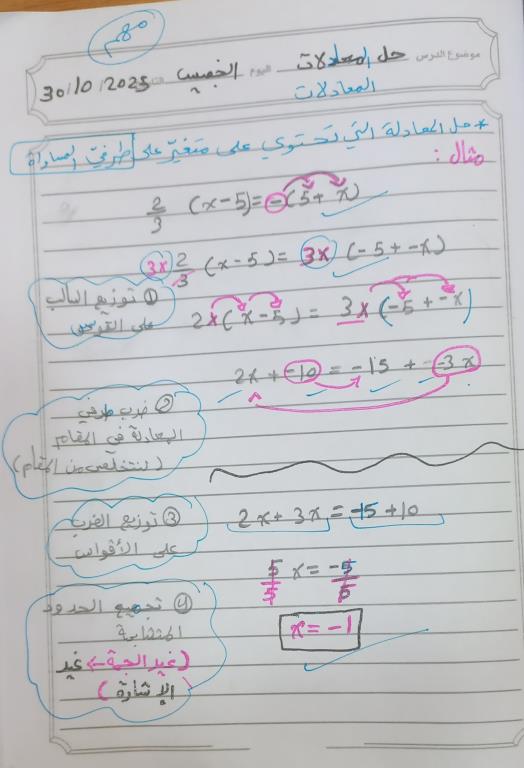 مهم
موضوع الدرس حل المعادلات اليوم الخميس 30/10/2025
المعادلات
* حل المعادلة التي تحتوي على متغير على طرفي المساواة
مثال :
2/3 (x-5) = -(5+x)
3x 2/3 (x-5) = 3x (-5+-x)
① توزيع السالب
على القوس
2x(x-5) = 3x(-5+-x)
2x + -10 = -15 + -3x
② ضرب طرفي
المعادلة في المقام
(لنتخلص من المقام)
③ توزيع الضرب
على الأقواس
2x + 3x = -15 + 10
5/5 x = -5/5
④ تجميع الحدود
المتشابهة
(غير الجهة ← غير
الإشارة)
x = -1